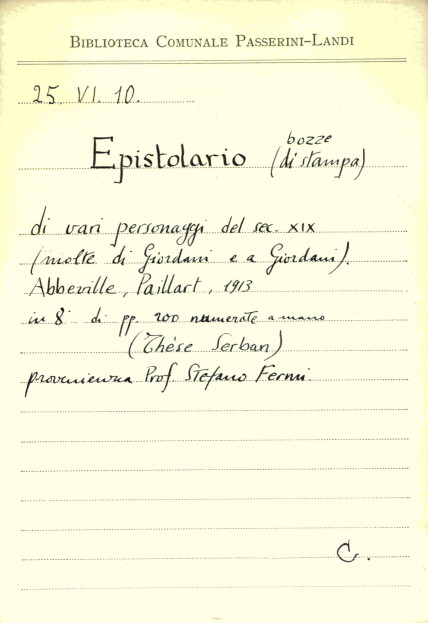 BIBLIOTECA COMUNALE PASSERINI-LANDI
25. VI. 10.
Epistolario (bozze di stampa)
di vari personaggi del sec. XIX
(molte di Giordani e a Giordani).
Abbeville, Paillart, 1913
in 8° di pp. 200 numerate a mano
(Thèse Serban)
provenienza Prof. Stefano Fermi.
C.